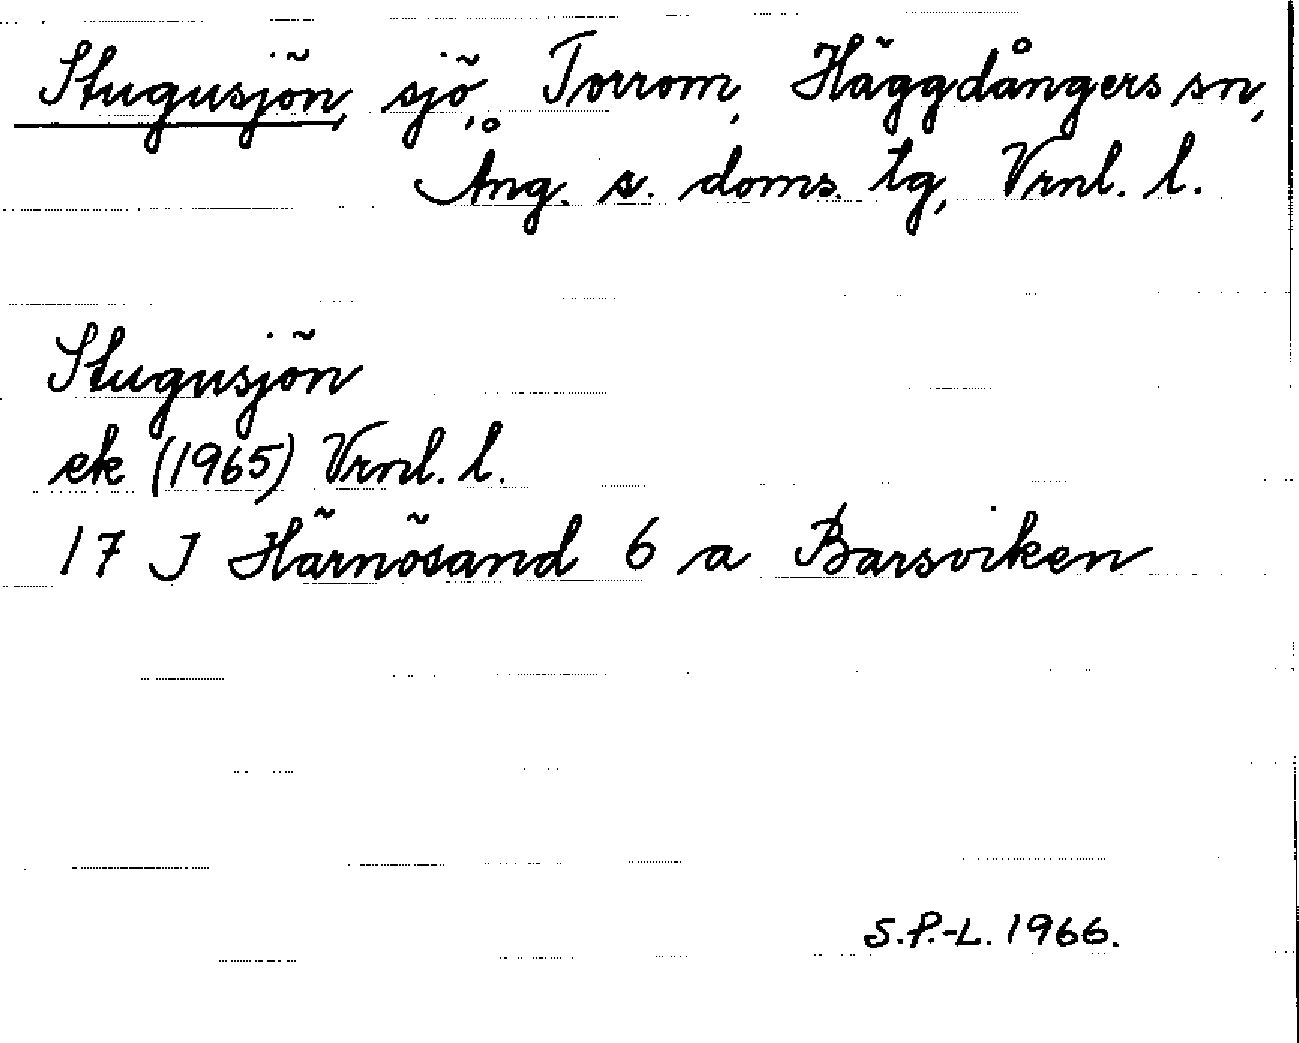 Stugusjön, sjö, Torrom, Häggdångers sn,
Ång. s. doms. tg, Vrnl. l.
Stugusjön
ek (1965) Vrnl. l.
17 J Härnösand 6 a Barsviken
S.P.-L. 1966.